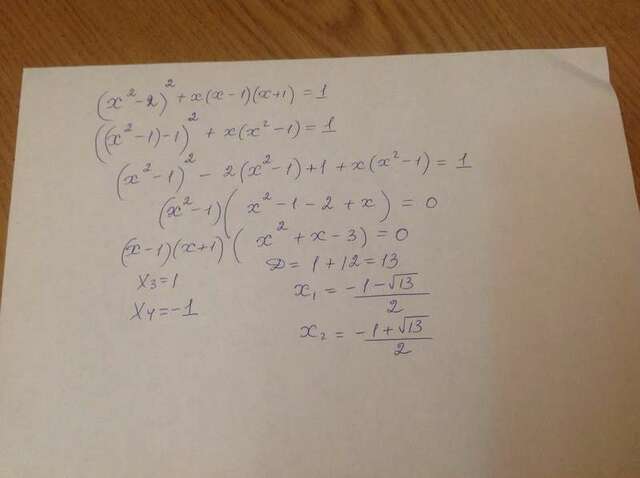 (x² - 2)² + x(x-1)(x+1) = 1
((x²-1)-1)² + x(x²-1) = 1
(x²-1)² - 2(x²-1)+1 + x(x²-1) = 1
(x²-1)(x²-1-2+x) = 0
(x-1)(x+1)(x²+x-3) = 0
X₃=1 D = 1+12=13
X₄=-1 x₁ = (-1-√13)/2
x₂ = (-1+√13)/2